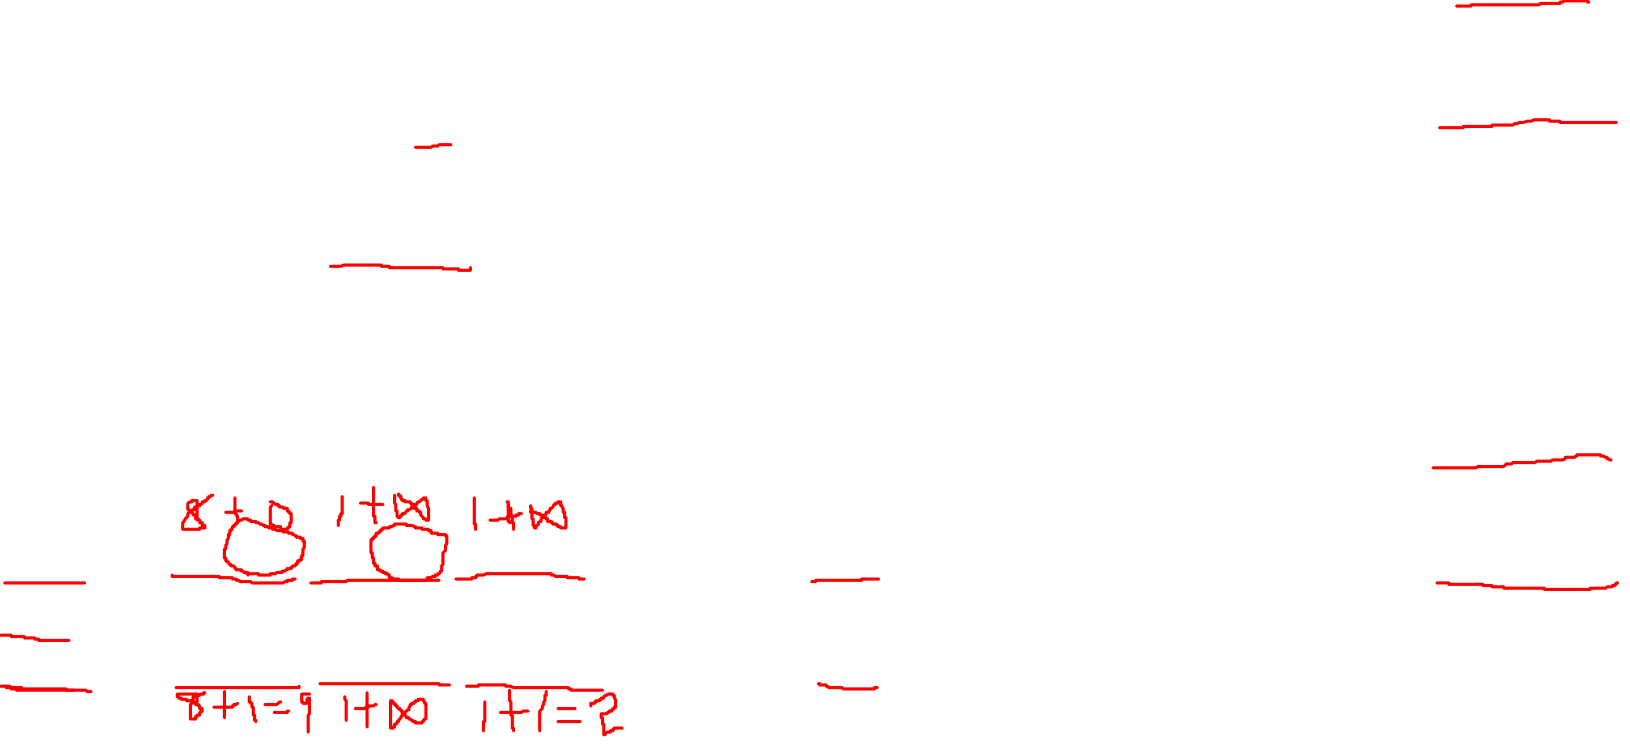 8+0 1+∞ 1+∞
8+1=9 1+∞ 1+1=2